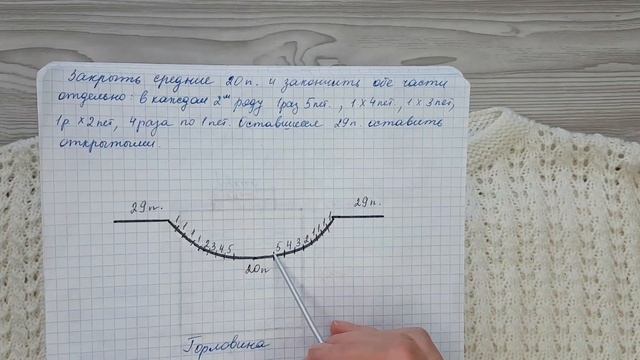 Закрыть средние 20п. и закончить обе части
отдельно: в каждом 2ᵐ ряду 1раз 5пет., 1×4пет., 1×3пет,
1р ×2пет, 4 раза по 1пет. Оставшиеся 29п. оставить
открытыми.
29п. 29п.
1 1 1 1 2 3 4 5 5 4 3 2 1 1 1 1
20п
Горловина